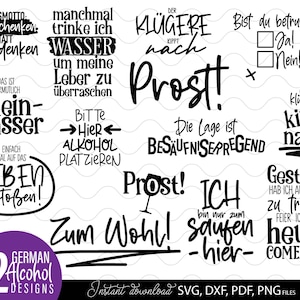 MOTTO
schenken
STATT
denken
manchmal
trinke ich
WASSER
um meine
Leber zu
überraschen
DER
KLÜGERE
KIPPT
nach
Prost!
Bist du betru
Ja
Nein!
DAS IST
ein-
asser
BITTE
HIER
ALKOHOL
PLATZIEREN
Die Lage ist
BESÄUFNISERREGEND
EINFACH
AL AUF DAS
BEN
toßen!
Prost!
Zum Wohl!
ICH
bin nur zum
saufen
-hier-
Gest
HAB ICH
zu
FEIER ICH
heu
COME
2
GERMAN
Alcohol
DESIGNS
Instant download
SVG, DXF, PDF, PNG FILES